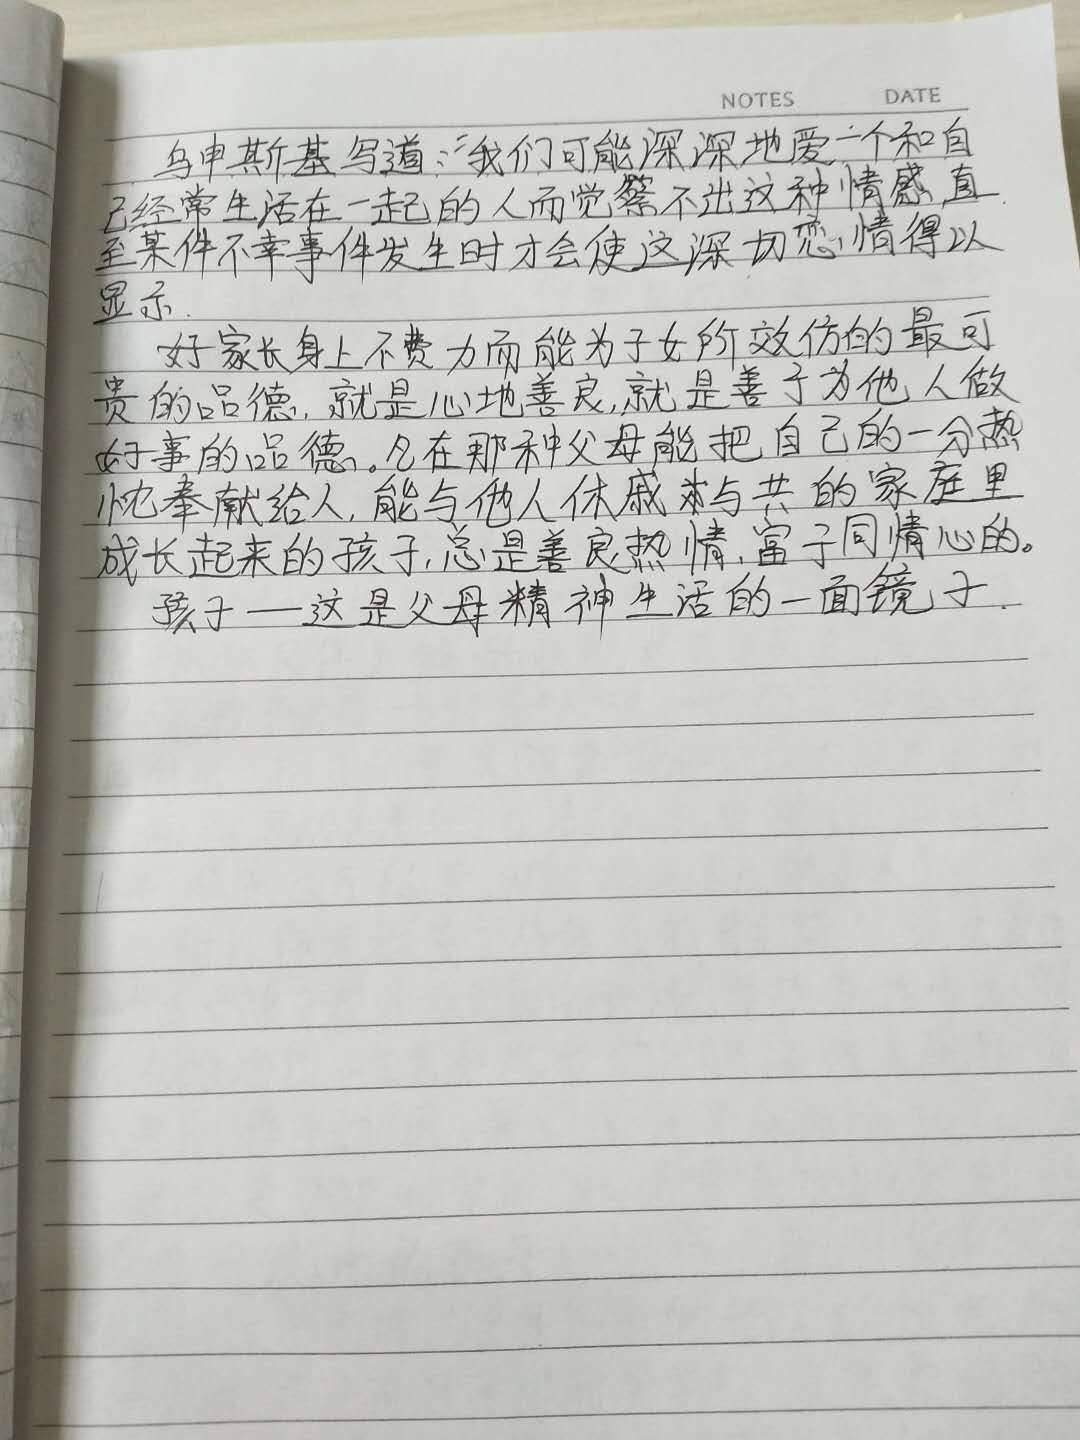 NOTES DATE
乌申斯基写道:“我们可能深深地爱一个和自
己经常生活在一起的人而觉察不出这种情感,直
至某件不幸事件发生时才会使这深切恋情得以
显示.
好家长身上不费力而能为子女所效仿的最可
贵的品德,就是心地善良,就是善于为他人做
好事的品德。凡在那种父母能把自己的一分热
忱奉献给人,能与他人休戚与共的家庭里
成长起来的孩子,总是善良热情,富于同情心的。
孩子——这是父母精神生活的一面镜子.